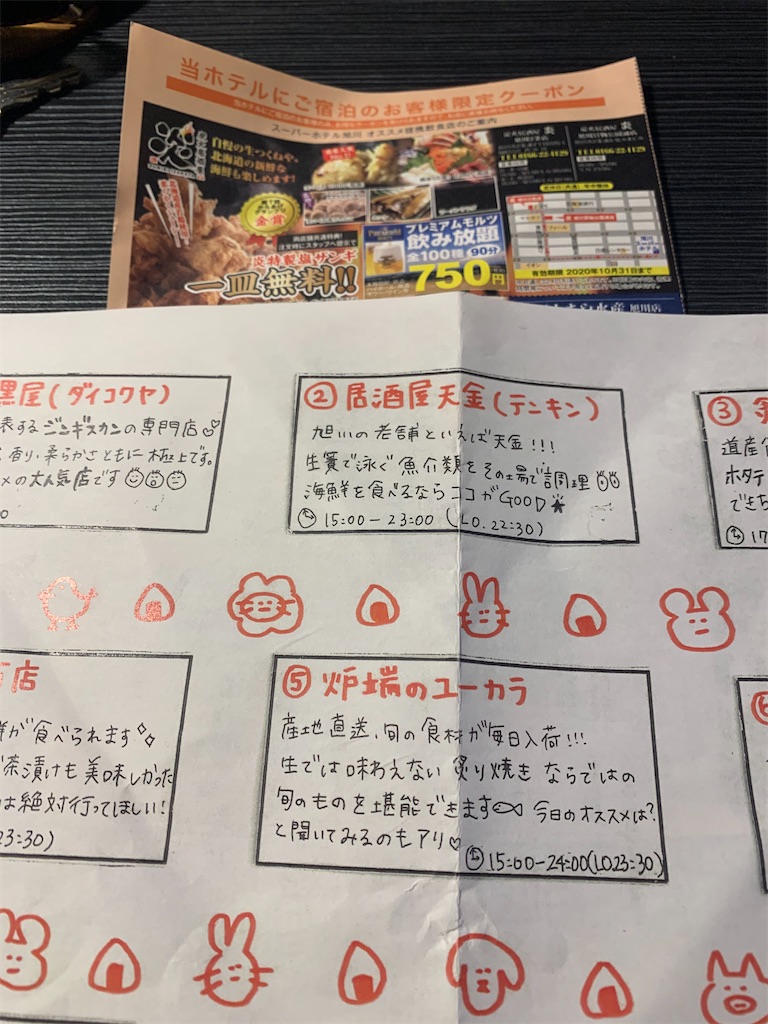 当ホテルにご宿泊のお客様限定クーポン
スーパーホテル旭川 オススメ提携飲食店のご案内
炎
自慢の生つくねや、
北海道の新鮮な
海鮮も楽しめます!
金賞
注文時にスタッフへ提示で
炎特製塩ザンギ
一皿無料!!
プレミアムモルツ
飲み放題
全100種 90分
750円
TEL0166-22-1129
有効期限 2020年10月31日まで
水産 旭川店
黒屋(ダイコクヤ)
表するジンギスカンの専門店
香り・柔らかさともに極上です。
メの大人気店です
② 居酒屋天金(テンキン)
旭川の老舗といえば天金!!!
生簀で泳ぐ魚介類をその場で調理
海鮮を食べるならココがGOOD
15:00-23:00 (L.O.22:30)
③
道産
ホタテ
できち
17
店
が食べられます
茶漬けも美味しかった
は絶対行ってほしい!
23:30)
⑤ 炉端のユーカラ
産地直送、旬の食材が毎日入荷!!!
生では味わえない炙り焼きならではの
旬のものを堪能できます 今日のオススメは?
と聞いてみるのもアリ♡
15:00-24:00(L.O.23:30)